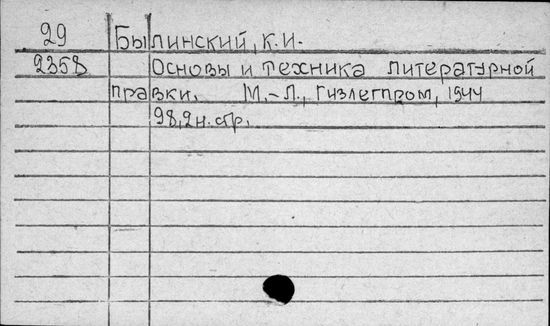 29 Былинский, К.И.
2358 Основы и техника литературной
правки. М.-Л., Гизлегпром, 1944
98,2н.стр.